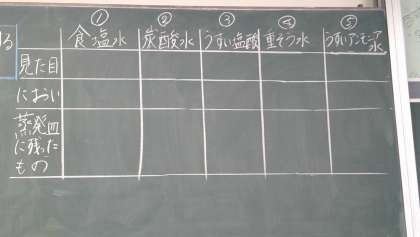 ① ② ③ ④ ⑤
る 食塩水 炭酸水 うすい塩酸 重そう水 うすいアンモニア水
見た目
におい
蒸発皿
に残った
もの